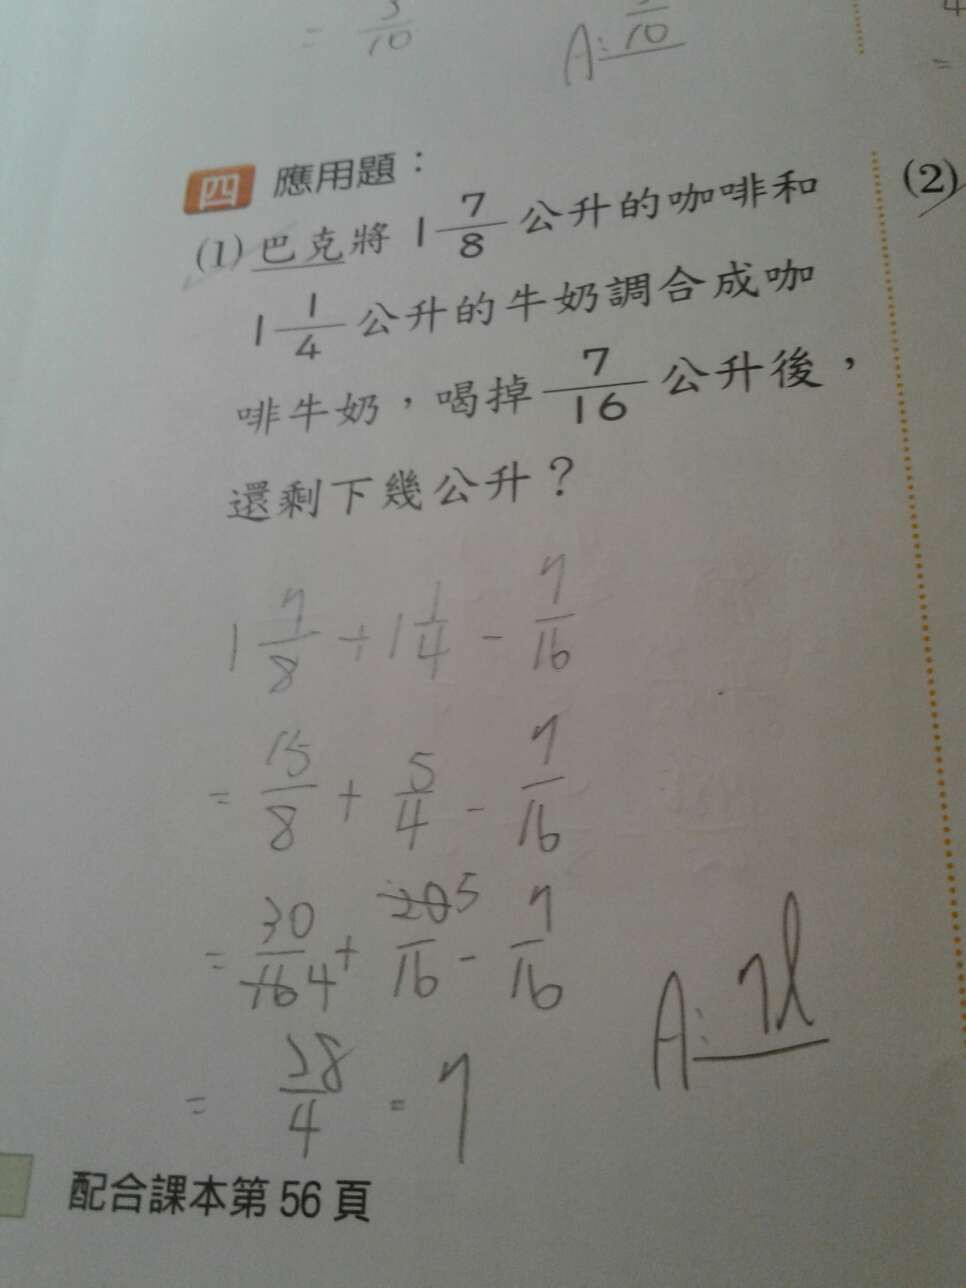 = 3/10
A: 3/10
四 應用題：
(1) 巴克將 1 7/8 公升的咖啡和
1 1/4 公升的牛奶調合成咖
啡牛奶，喝掉 7/16 公升後，
還剩下幾公升？
1 7/8 + 1 1/4 - 7/16
= 15/8 + 5/4 - 7/16
= 30/16 4 + 20 5/16 - 7/16
= 28/4 = 7
A: 7l
配合課本第 56 頁
(2)
4
=